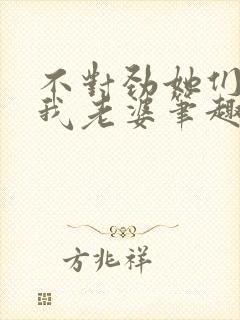 不對勁她们
我老婆筆趣
方兆祥